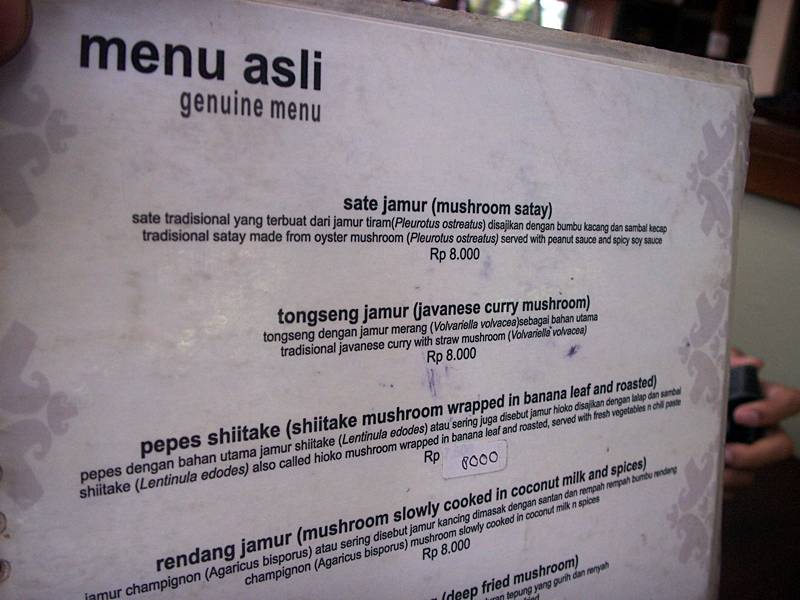 menu asli
genuine menu
sate jamur (mushroom satay)
sate tradisional yang terbuat dari jamur tiram(Pleurotus ostreatus) disajikan dengan bumbu kacang dan sambal kecap
tradisional satay made from oyster mushroom (Pleurotus ostreatus) served with peanut sauce and spicy soy sauce
Rp 8.000
tongseng jamur (javanese curry mushroom)
tongseng dengan jamur merang (Volvariella volvacea)sebagai bahan utama
traditional javanese curry with straw mushroom (Volvariella volvacea)
Rp 8.000
pepes shiitake (shiitake mushroom wrapped in banana leaf and roasted)
pepes dengan bahan utama jamur shiitake (Lentinula edodes) atau sering juga disebut jamur hioko disajikan dengan lalap dan sambal
shiitake (Lentinula edodes) also called hioko mushroom wrapped in banana leaf and roasted, served with fresh vegetables n chili paste
Rp 8000
rendang jamur (mushroom slowly cooked in coconut milk and spices)
jamur champignon (Agaricus bisporus) atau sering disebut jamur kancing dimasak dengan santan dan rempah rempah bumbu rendang
champignon (Agaricus bisporus) mushroom slowly cooked in coconut milk n spices
Rp 8.000
(deep fried mushroom)
tepung yang gurih dan renyah